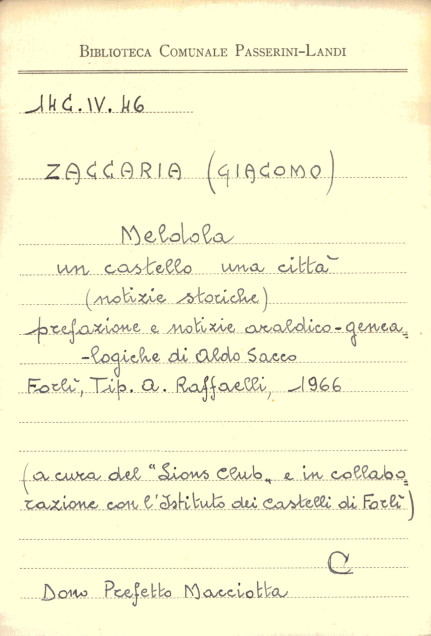 BIBLIOTECA COMUNALE PASSERINI-LANDI
14C.IV.46
ZACCARIA (GIACOMO)
Meldola
un castello una città
(notizie storiche)
prefazione e notizie araldico-genea=
-logiche di Aldo Sacco
Forlì, Tip. A. Raffaelli, 1966
(a cura del "Lions Club" e in collabo=
razione con l'Istituto dei Castelli di Forlì)
C
Dono Prefetto Macciotta